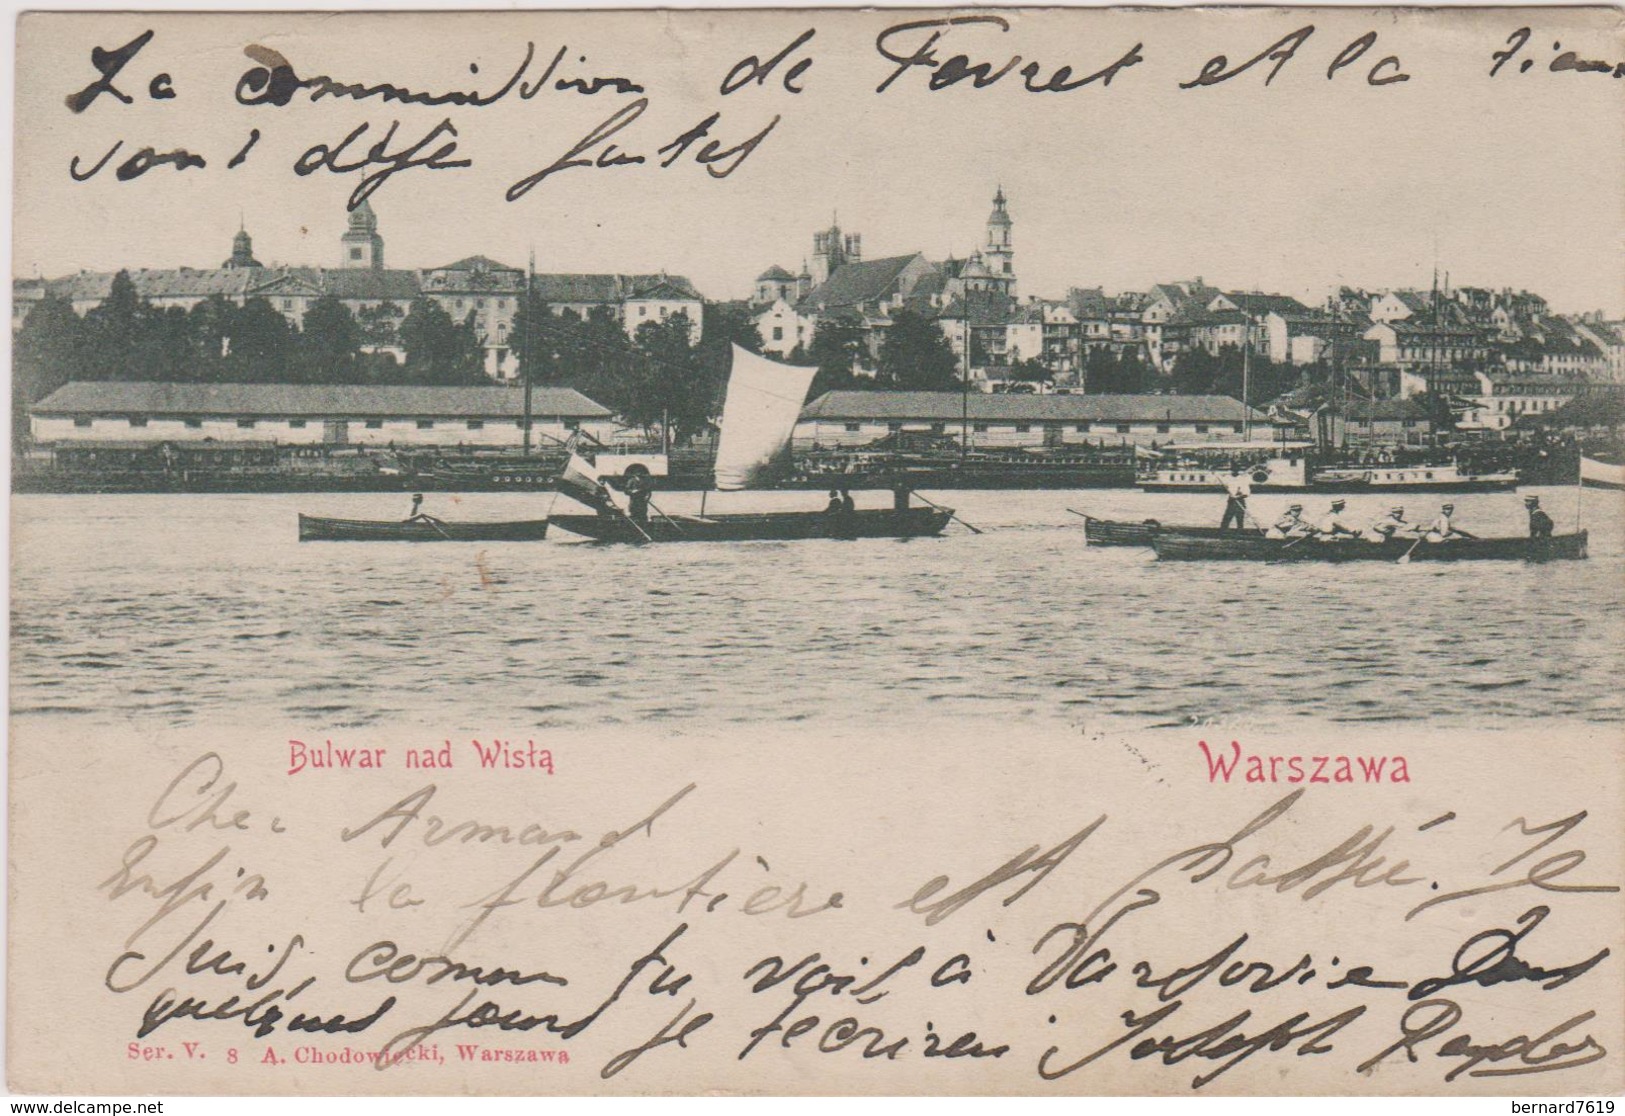 La commission de Fevret et la tienne
sont dèse faites
Bulwar nad Wisłą
Warszawa
Cher Armand
Enfin la frontière est passée. Je
suis, comme tu vois, à Varsovie Dans
quelques jours je t'ecrirai Joseph
Ser. V. 8 A. Chodowiecki, Warszawa
delcampe.net
bernard7619